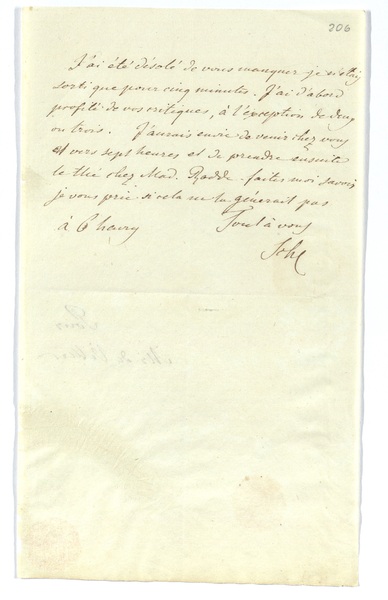 206
J'ai été désolé de vous manquer, je n'étois
sorti que pour cinq minutes. J'ai d'abord
profité de vos critiques, à l'exception de deux
ou trois. J'aurais envie de venir chez vous
vers sept heures et de prendre ensuite
le thé chez Mad. faites moi savoir
je vous prie si cela ne vous générait pas
à 6 heures Tout à vous